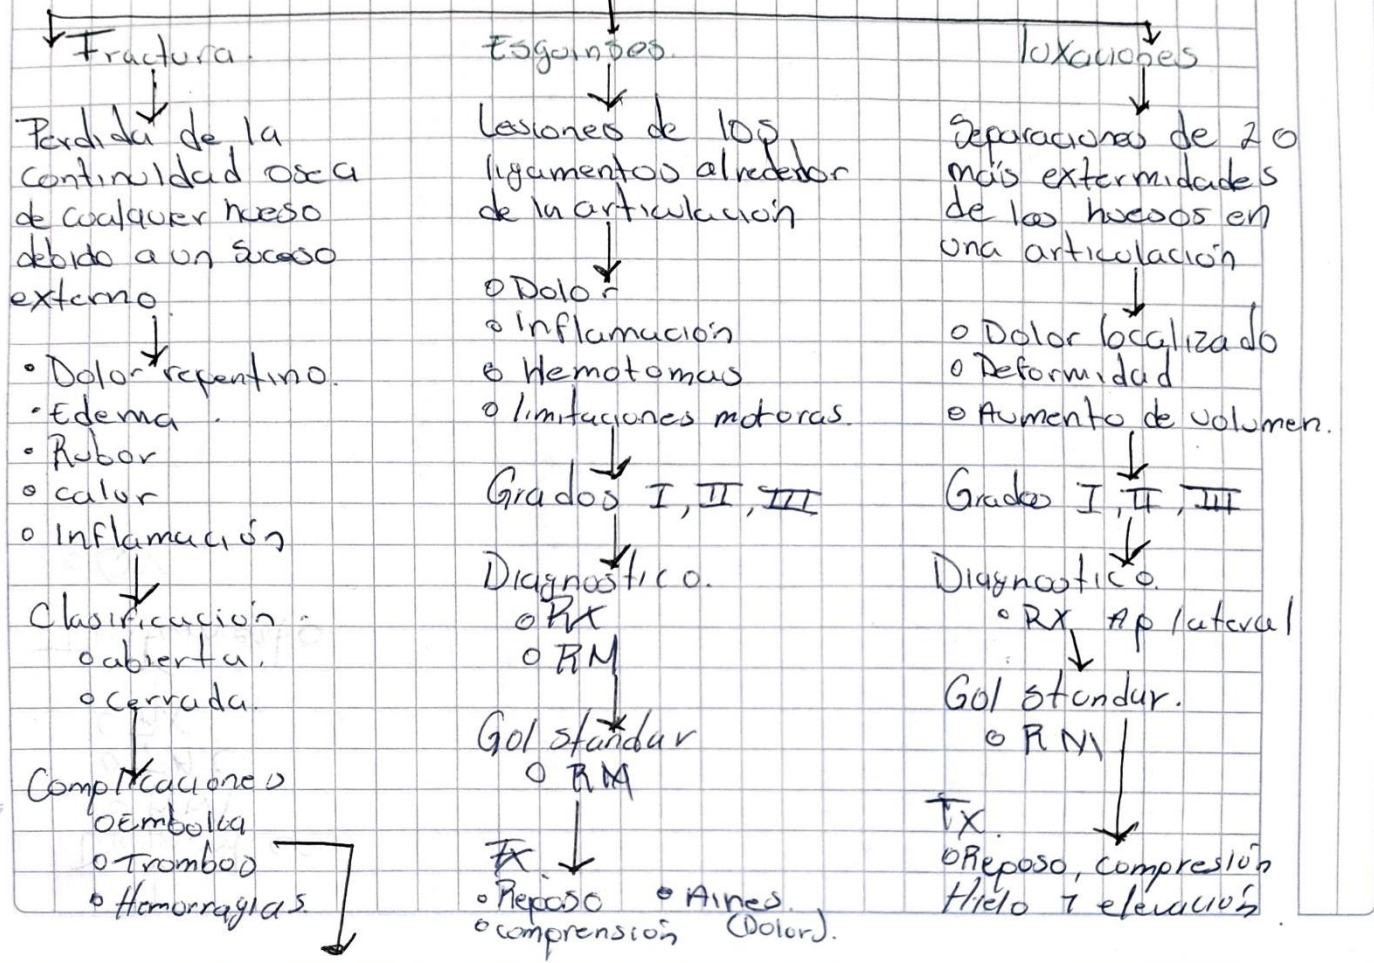 Fractura.
Perdida de la
continuidad osea
de cualquer hueso
debido a un suceso
externo
• Dolor repentino.
• Edema.
• Rubor
• calor
• Inflamación
Clasificación.
• abierta.
• cerrada.
Complicaciones
• Embolia
• Trombos
• Hemorragias.
Esguinses.
Lesiones de los
ligamentos alrededor
de la articulación
• Dolor
• Inflamación
• Hemotomas
• limitaciones motoras.
Grados I, II, III
Diagnostico.
• RX
• RM
Gol standar
• RM
TX.
• Reposo • Aines.
• comprensión (Dolor).
luxaciones
Separaciones de 2 o
más extermidades
de los huesos en
una articulación
• Dolor localizado
• Deformidad
• Aumento de volumen.
Grados I, II, III
Diagnostico.
• RX Ap lateral
Gol standar.
• RM
Tx.
• Reposo, compresión
Hielo y elevación.